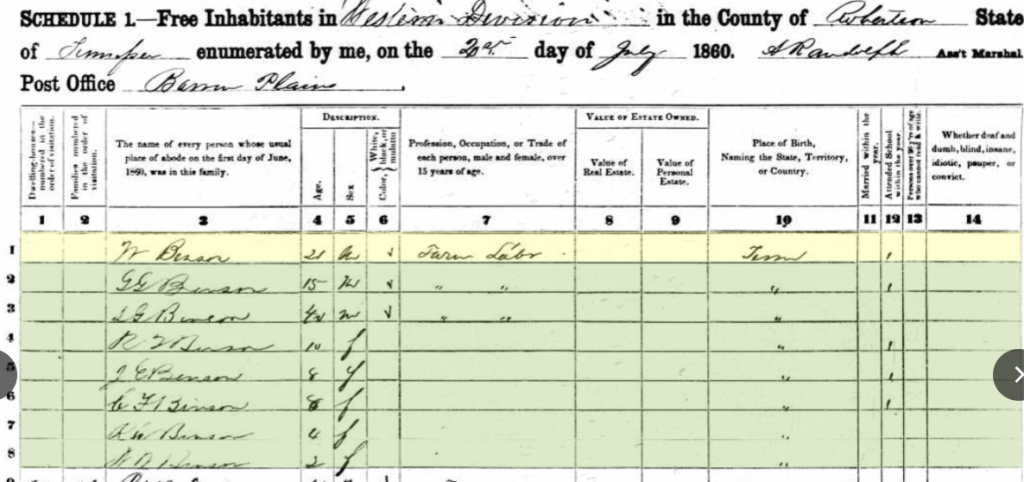 SCHEDULE 1.—Free Inhabitants in Western Division in the County of Robertson State
of Tennessee enumerated by me, on the day of July 1860. A Randolph Ass't Marshal
Post Office Barren Plains.
Dwelling-houses—numbered in the order of visitation.
Families numbered in the order of visitation.
The name of every person whose usual place of abode on the first day of June, 1860, was in this family.
DESCRIPTION.
Age.
Sex
Color, { White, black, or mulatto
Profession, Occupation, or Trade of each person, male and female, over 15 years of age.
VALUE OF ESTATE OWNED.
Value of Real Estate.
Value of Personal Estate.
Place of Birth, Naming the State, Territory, or Country.
Married within the year.
Attended School within the year.
Persons over 20 y'rs of age who cannot read & write.
Whether deaf and dumb, blind, insane, idiotic, pauper, or convict.
1 2 3 4 5 6 7 8 9 10 11 12 13 14
1 W Benson 21 m Farm Labr Tenn 1
2 GG Benson 15 m " " " 1
3 Benson m " " "
4 Benson 10 f " 1
5 J E Benson 8 f " 1
6 C F Benson f " 1
7 Benson 4 f "
8 Benson 2 f "